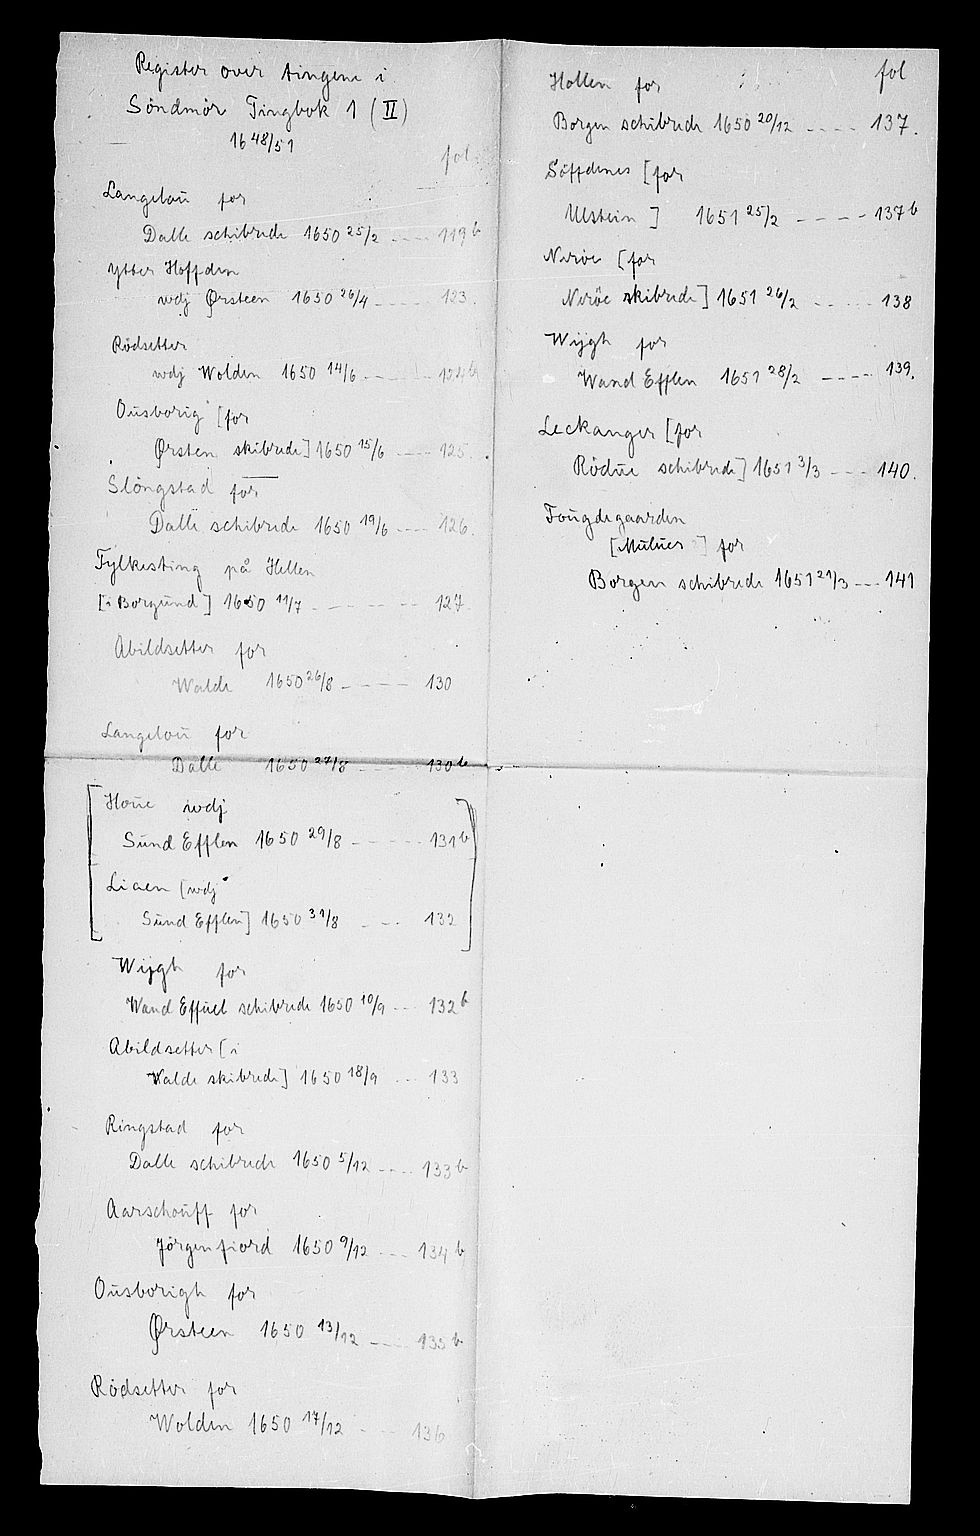 Register over tingene i
Söndmör Tingbok 1 (II)
1648/51
fol.
Langeloũ for
Dalle schibrede 1650 25/2 ---- 119 b
Ytter Hoffden
wdj Ørsteen 1650 26/4 ---- 123.
Rödsetter
wdj Wolden 1650 14/6 ---- 124b
Oũsborig [for
Ørsten skibrede] 1650 15/6 ---- 125.
Slöngstad for
Dalle schibrede 1650 19/6 ---- 126.
Fylkesting på Hellen
[i Borgund] 1650 11/7 ------ 127.
Abildsetter for
Walde 1650 26/8 ----- 130
Langeloũ for
Dalle 1650 27/8 ----- 130 b
Hoũe wdj
Sũnd Efflen 1650 29/8 ----- 131 b
Liaen [wdj
Sũnd Efflen] 1650 31/8 --- 132
Wijgh for
Wand Effũel schibrede 1650 10/9 --- 132 b
Abildsetter [i
Walde skibrede] 1650 18/9 --- 133
Ringstad for
Dalle schibrede 1650 5/12 ---- 133 b
Aarschoũff for
Jörgenfiord 1650 9/12 --- 134 b
Oũsborigh for
Ørsteen 1650 13/12 ---- 135 b
Rödsetter for
Wolden 1650 17/12 --- 136
fol
Hollen for
Borgen schibrede 1650 20/12 ---- 137.
Söffdenes [for
Ulstein] 1651 25/2 ---- 137 b
Neröe [for
Neröe skibrede] 1651 26/2 ----- 138
Wijgh for
Wand Efflen 1651 28/2 ---- 139.
Leckanger [for
Rödũe schibrede] 1651 3/3 --- 140.
Foũgdegaarden
[Mũlũer] for
Borgen schibrede 1651 21/3 --- 141